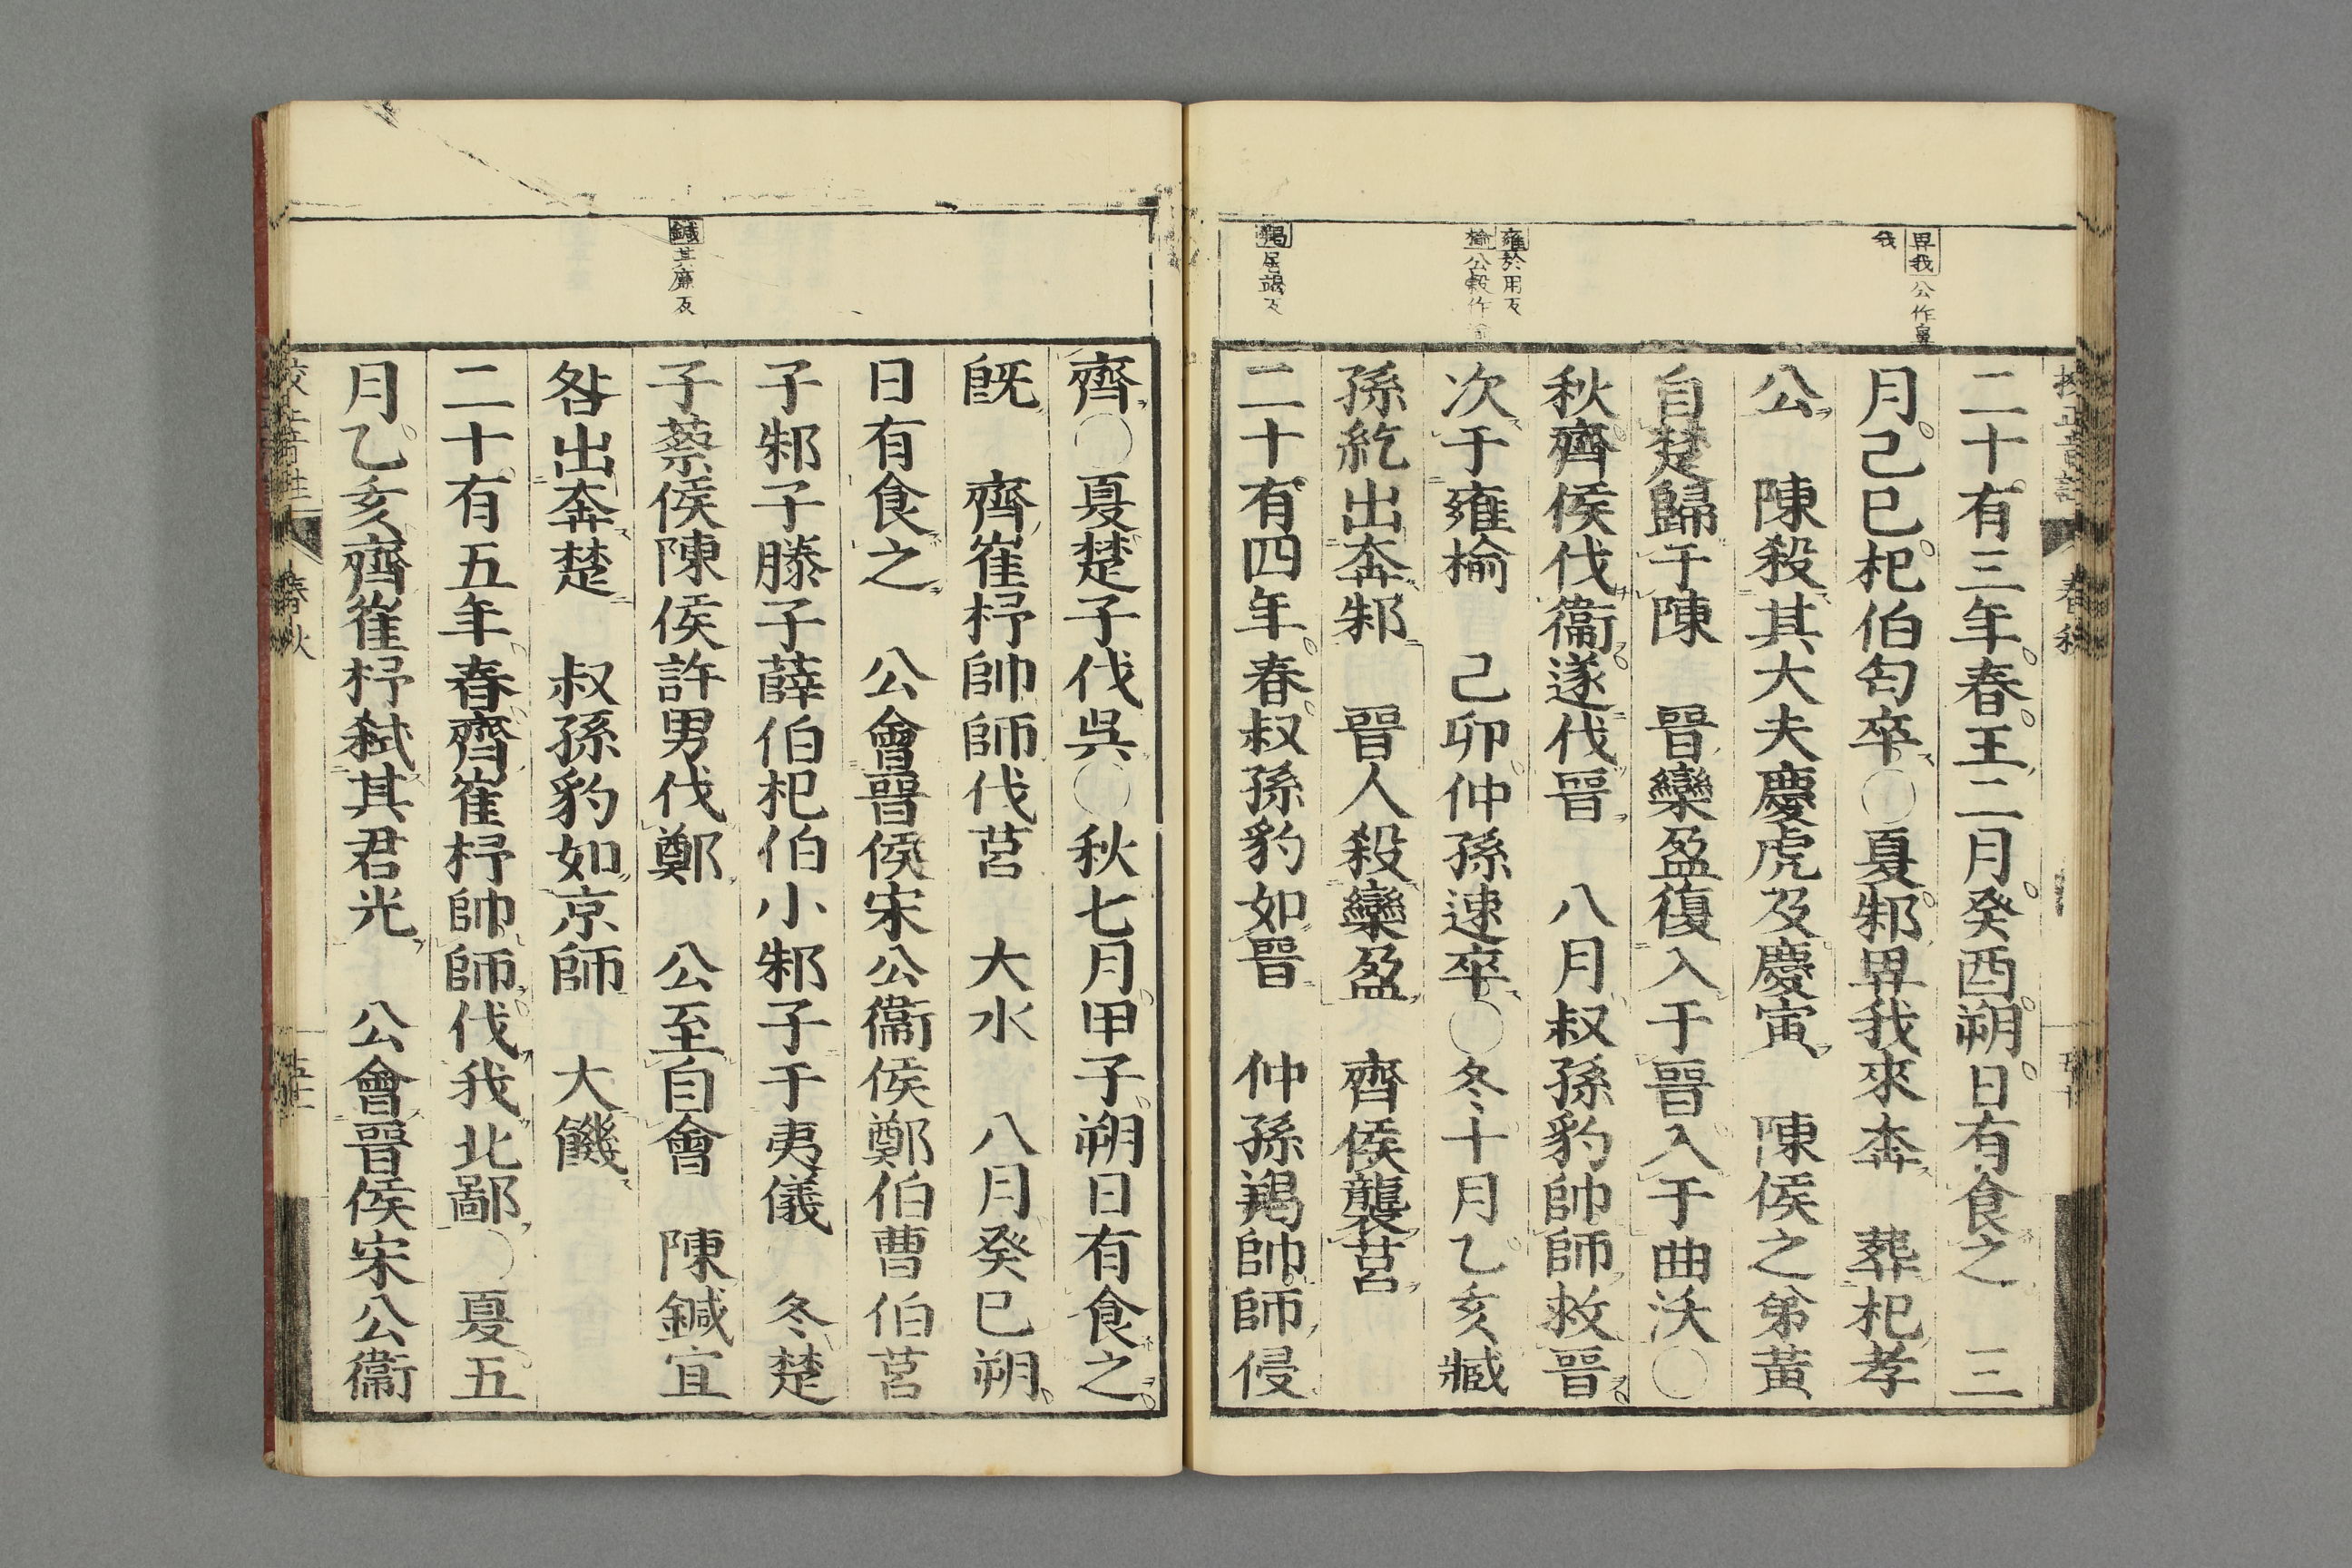 畀我公作鼻
我
雍於用反
楡公穀作
羯居謁反
二十有三年春王二月癸酉朔日有食之　三
月己巳杞伯匄卒○夏邾畀我來奔　葬杞孝
公　陳殺其大夫慶虎及慶寅　陳侯之弟黃
自楚歸于陳　晉欒盈復入于晉入于曲沃○
秋齊侯伐衞遂伐晉　八月叔孫豹帥師救晉
次于雍楡　己卯仲孫速卒○冬十月乙亥臧
孫紇出奔邾　晉人殺欒盈　齊侯襲莒
二十有四年春叔孫豹如晉　仲孫羯帥師侵
春秋
鍼其廉反
齊○夏楚子伐吳○秋七月甲子朔日有食之
旣　齊崔杼帥師伐莒　大水　八月癸巳朔
日有食之　公會晉侯宋公衞侯鄭伯曹伯莒
子邾子滕子薛伯杞伯小邾子于夷儀　冬楚
子蔡侯陳侯許男伐鄭　公至自會　陳鍼宜
咎出奔楚　叔孫豹如京師　大饑
二十有五年春齊崔杼帥師伐我北鄙○夏五
月乙亥齊崔杼弑其君光　公會晉侯宋公衞
春秋